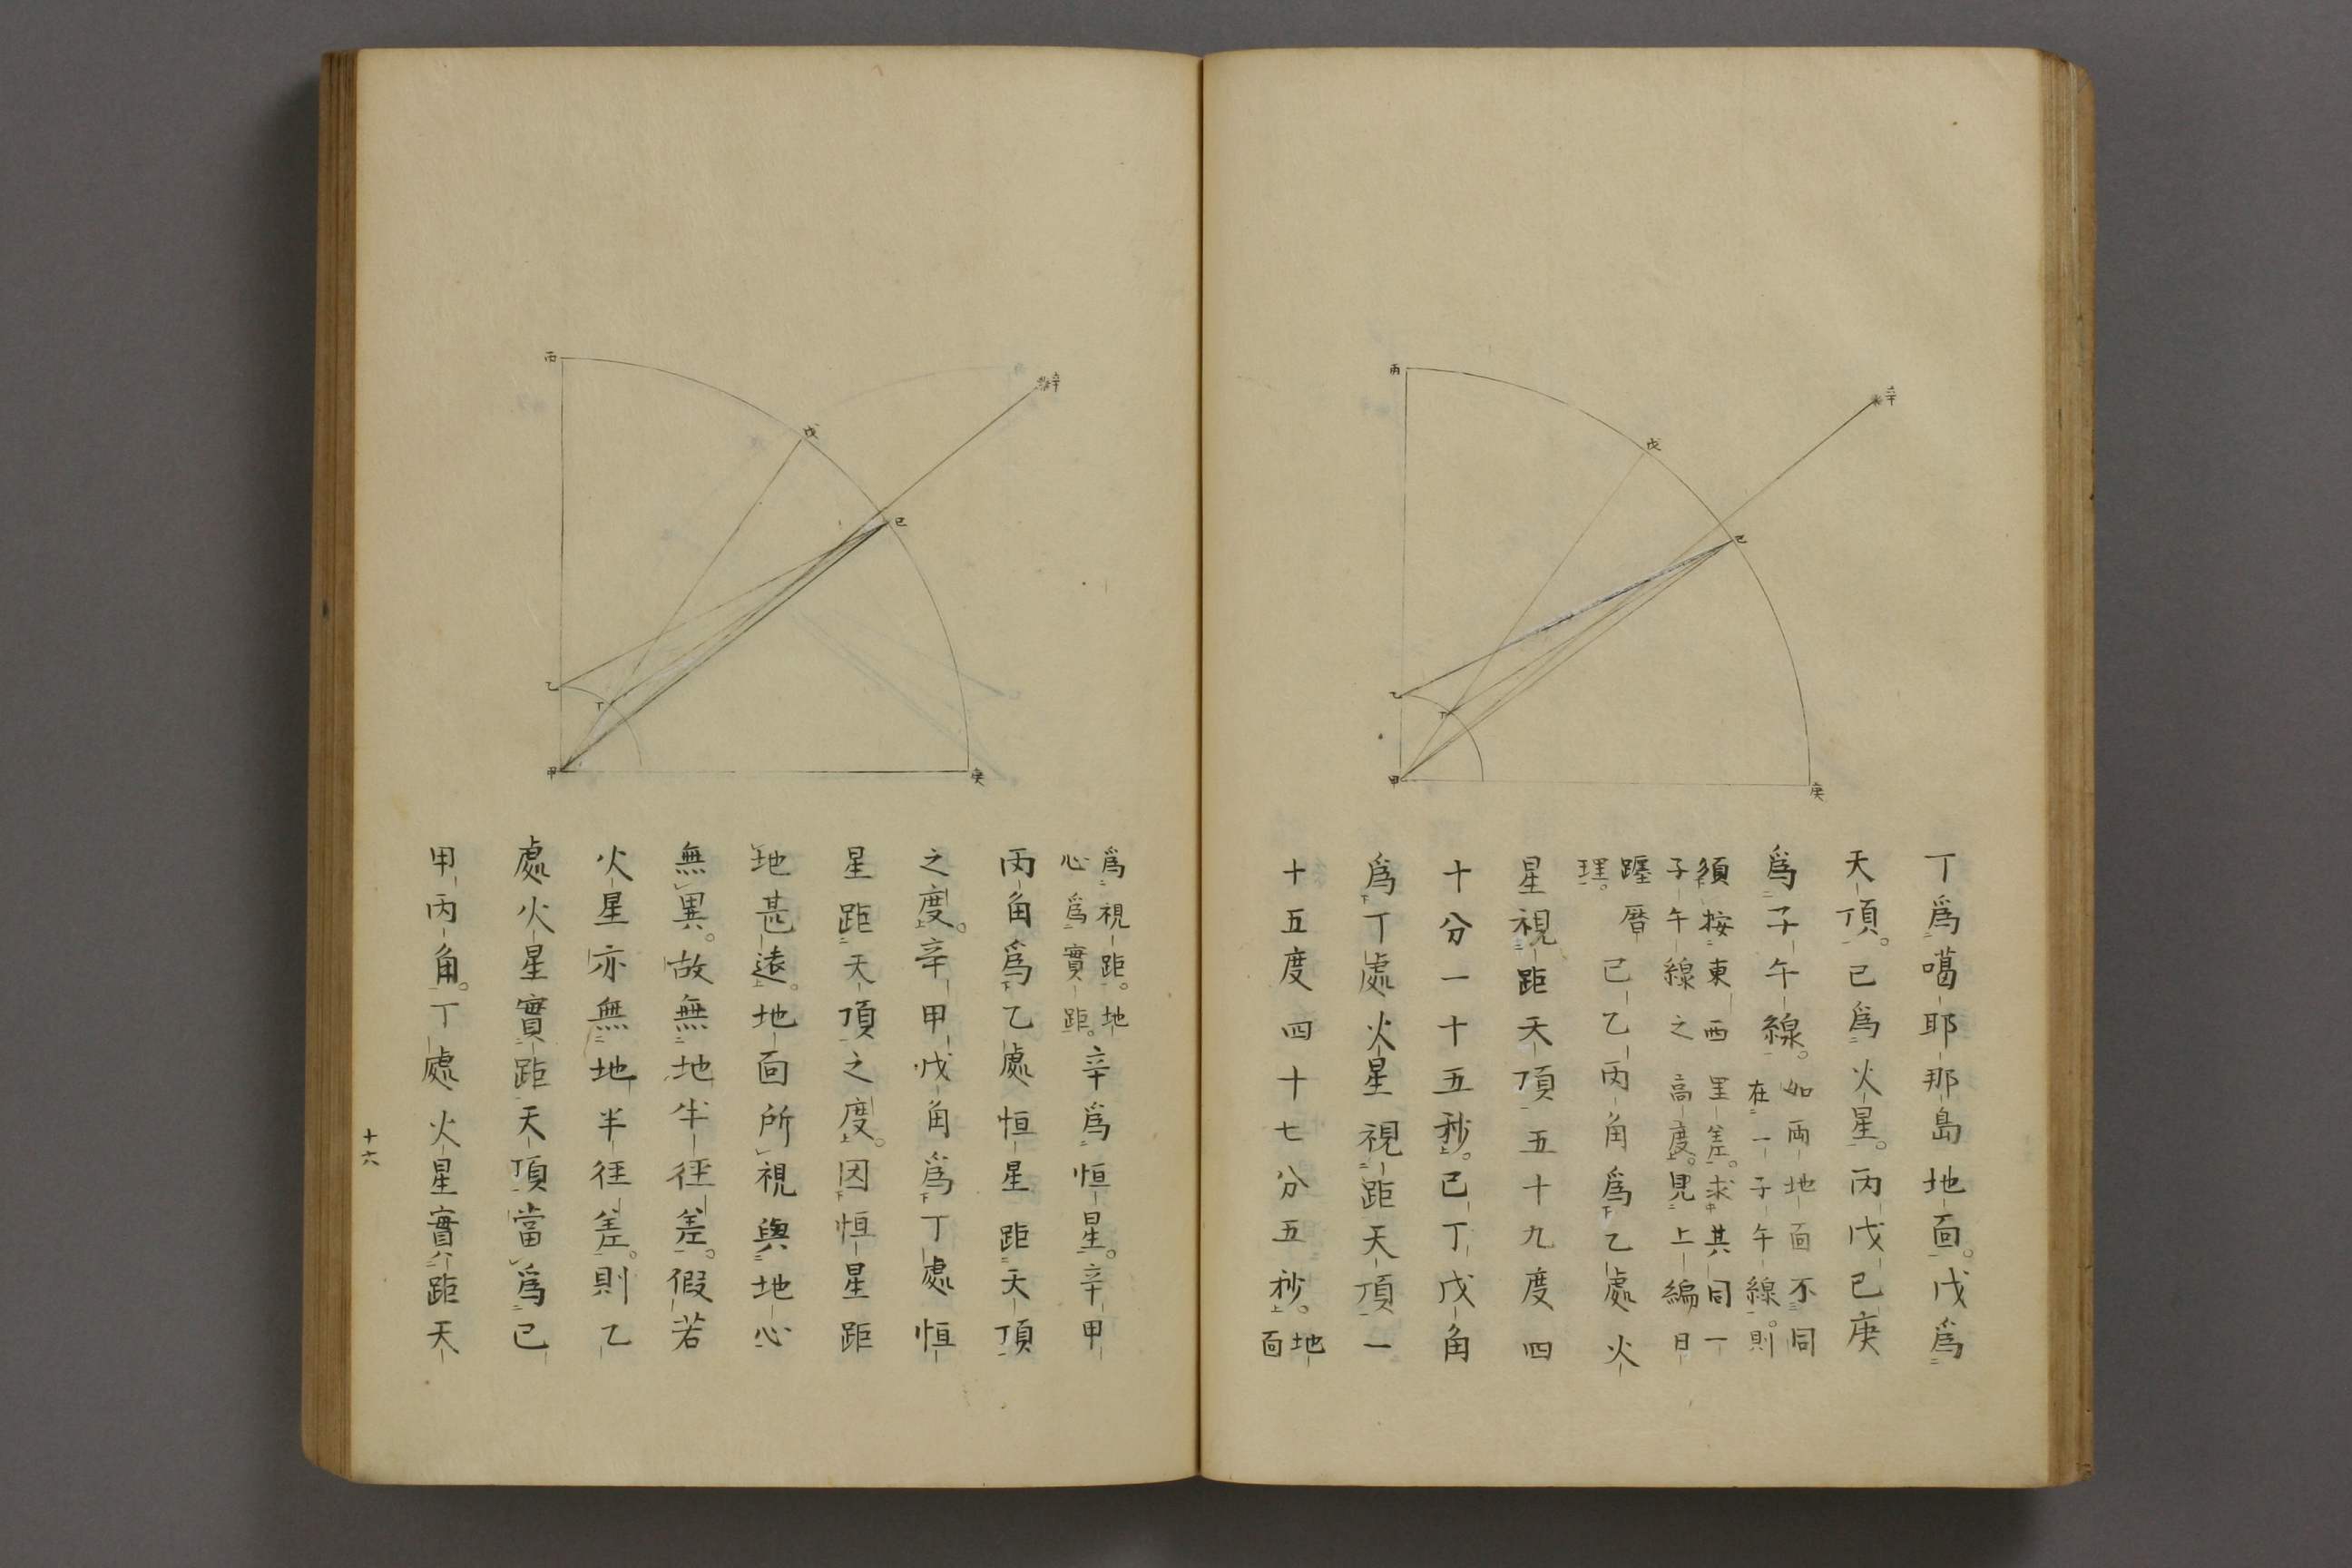 丙
戊
辛
己
乙
丁
甲
庚
丁爲噶耶那島地面。戊爲
天頂。己爲火星。丙戊己庚
爲子午線。如兩地面不同
在一子午線。則
須按東西里差。求其同一
子午線之高度。見上編日
躔曆
理。己乙丙角爲乙處火
星視距天頂五十九度四
十分一十五秒。己丁戊角
爲丁處火星視距天頂一
十五度四十七分五秒。地
面
丙
戊
辛
己
乙
丁
甲
庚
爲視距。地
心爲實距。辛爲恒星。辛甲
丙角爲乙處恒星距天頂
之度。辛甲戊角爲丁處恒
星距天頂之度。因恒星距
地甚遠。地面所視與地心
無異。故無地半徑差。假若
火星亦無地半徑差。則乙
處火星實距天頂當爲己
甲丙角。丁處火星實距天
十六